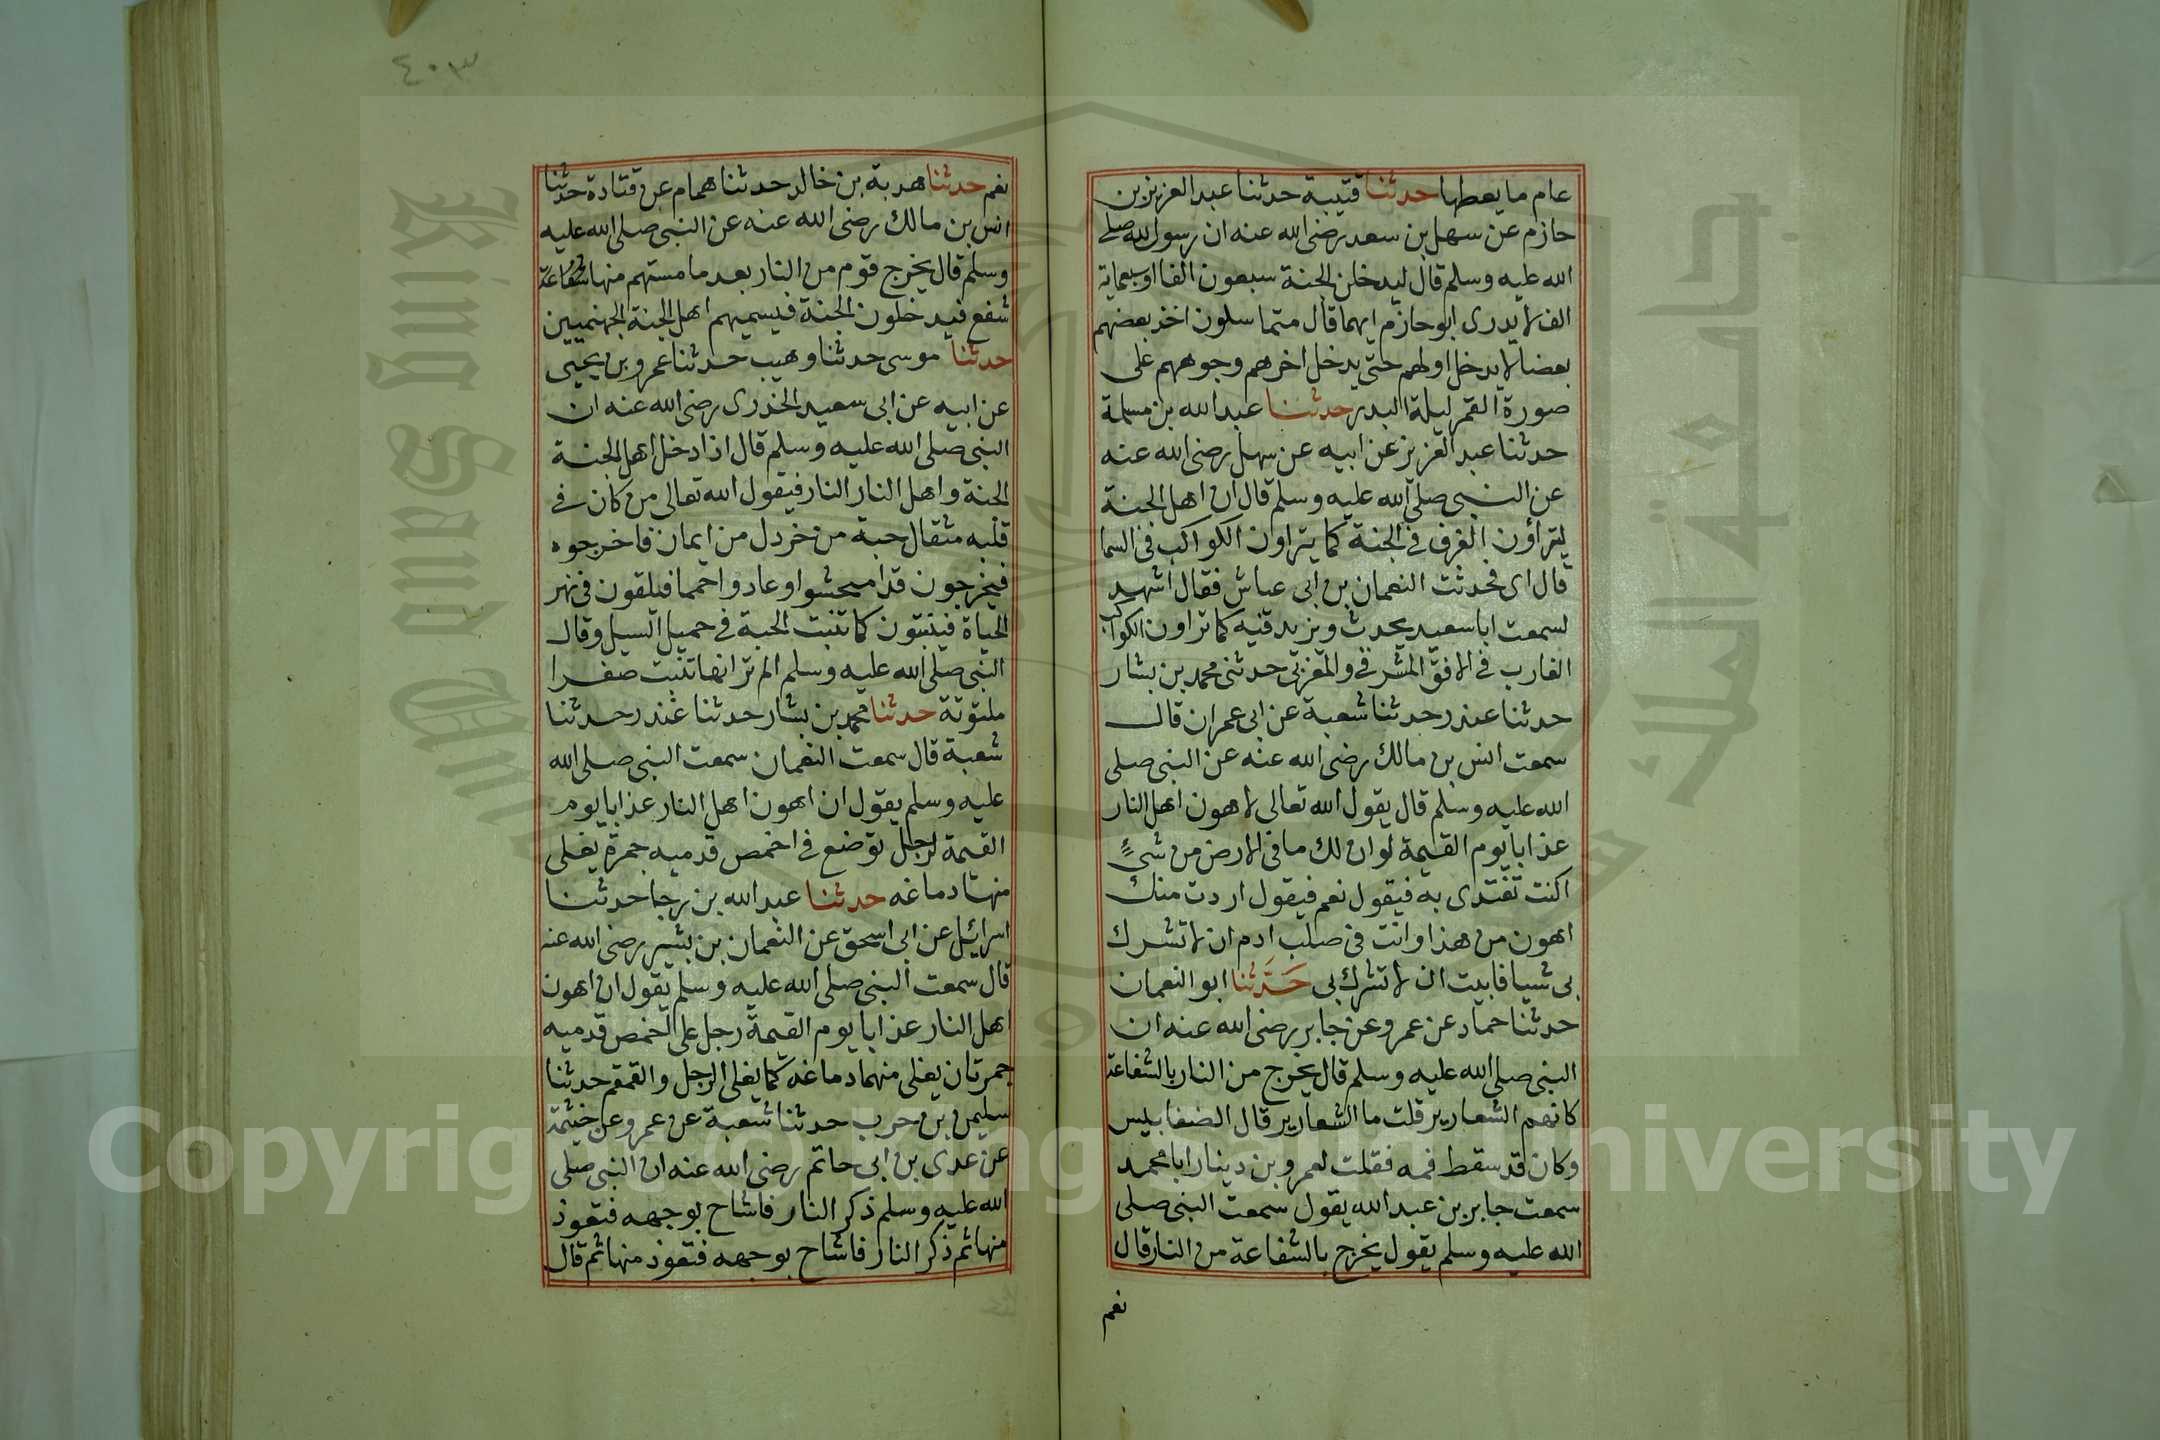 عام ما يعطها حدثنا قتيبة حدثنا عبد العزيز بن
حازم عن سهل بن سعد رضى الله عنه ان رسول الله صلى
الله عليه وسلم قال ليدخلن الجنة سبعون الفا اوسبعماية
الف لا يدرى ابوحازم ايهما قال متماسلون اخذ بعضهم
بعضا لا يدخل اولهم حتى يدخل اخرهم وجوههم على
صورة القمر ليلة البدر حدثنا عبد الله بن مسلمة
حدثنا عبد العزيز عن ابيه عن سهل رضى الله عنه
عن النبى صلى الله عليه وسلم قال ان اهل الجنة
ليتراؤن الغرف فى الجنة كما يتراون الكواكب فى السما
قال اى فحدثت النعمان بن ابى عباش فقال اشهد
لسمعت ابا سعيد يحدث ويزيد فيه كما تراون الكواكب
الغارب فى الافق المشرقى والمغربى حدثنى محمد بن بشار
حدثنا عندر حدثنا شعبة عن ابى عمران قال
سمعت انس بن مالك رضى الله عنه عن النبى صلى
الله عليه وسلم قال يقول الله تعالى لاهون اهل النار
عذابا يوم القيمة لو ان لك ما فى الارض من شئ
اكنت تفتدى به فيقول نعم فيقول اردت منك
اهون من هذا وانت فى صلب ادم ان لا تشرك
بى شيا فابيت ان لا تشرك بى حَدَّثنا ابو النعمان
حدثنا حماد عن عمرو عن جابر رضى الله عنه ان
النبى صلى الله عليه وسلم قال يخرج من النار بالشفاعة
كانهم الثعارير قلت ما الثعارير قال الضغابيس
وكان قد سقط فمه فقلت لعمرو بن دينار ابا محمد
سمعت جابر بن عبد الله يقول سمعت النبى صلى
الله عليه وسلم يقول يخرج بالشفاعة من النار قال
نعم
٤٠٣
نعم حدثنا هدبة بن خالد حدثنا همام عن قتادة حدثنا
انس بن مالك رضى الله عنه عن النبى صلى الله عليه
وسلم قال يخرج قوم من النار بعد ما مستهم منها شفاعة
شفع فيدخلون الجنة فيسميهم اهل الجنة الجهنميين
حدثنا موسى حدثنا وهيب حدثنا عمرو بن يحيى
عن ابيه عن ابى سعيد الخذرى رضى الله عنه ان
النبى صلى الله عليه وسلم قال اذا دخل اهل الجنة
الجنة واهل النار النار فيقول الله تعالى من كان فى
قلبه مثقال حبة من خردل من ايمان فاخرجوه
فيخرجون قد امتحشوا وعادوا حمما فيلقون فى نهر
الحياة فينبتون كما تنبت الحبة فى حميل السيل وقال
النبى صلى الله عليه وسلم الم تر انها تنبت صفرا
ملتوتة حدثنا محمد بن بشار حدثنا غندر حدثنا
شعبة قال سمعت النعمان سمعت النبى صلى الله
عليه وسلم يقول ان اهون اهل النار عذابا يوم
القيمة لرجل توضع فى اخمص قدميه جمرة يغلى
منها دماغه حدثنا عبد الله بن رجا حدثنا
اسرائيل عن ابى اسحق عن النعمان بن بشير رضى الله عنه
قال سمعت النبى صلى الله عليه وسلم يقول ان اهون
اهل النار عذابا يوم القيمة رجل على اخمص قدميه
جمرتان يغلى منهما دماغه كما يغلى المرجل والقمقم حدثنا
سليمن بن حرب حدثنا شعبة عن عمرو عن خيثمة
عن عدى بن ابى حاتم رضى الله عنه ان النبى صلى
الله عليه وسلم ذكر النار فاشاح بوجهه فتعوذ
منها ثم ذكر النار فاشاح بوجهه فتعوذ منها ثم قال
King Saud University
جامعة الملك سعود
Copyright © King Saud University